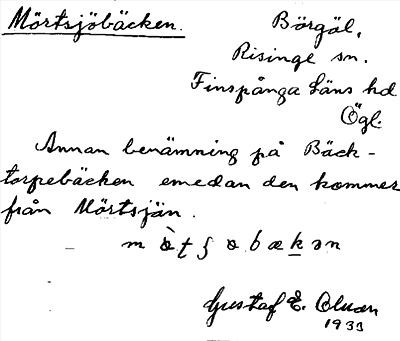 Mörtsjöbäcken.
Börgöl,
Risinge sn.
Finspånga Läns hd
Ögl.
Annan benämning på Bäck-
torpebäcken emedan den kommer
från Mörtsjön.
Gustaf E.
1933